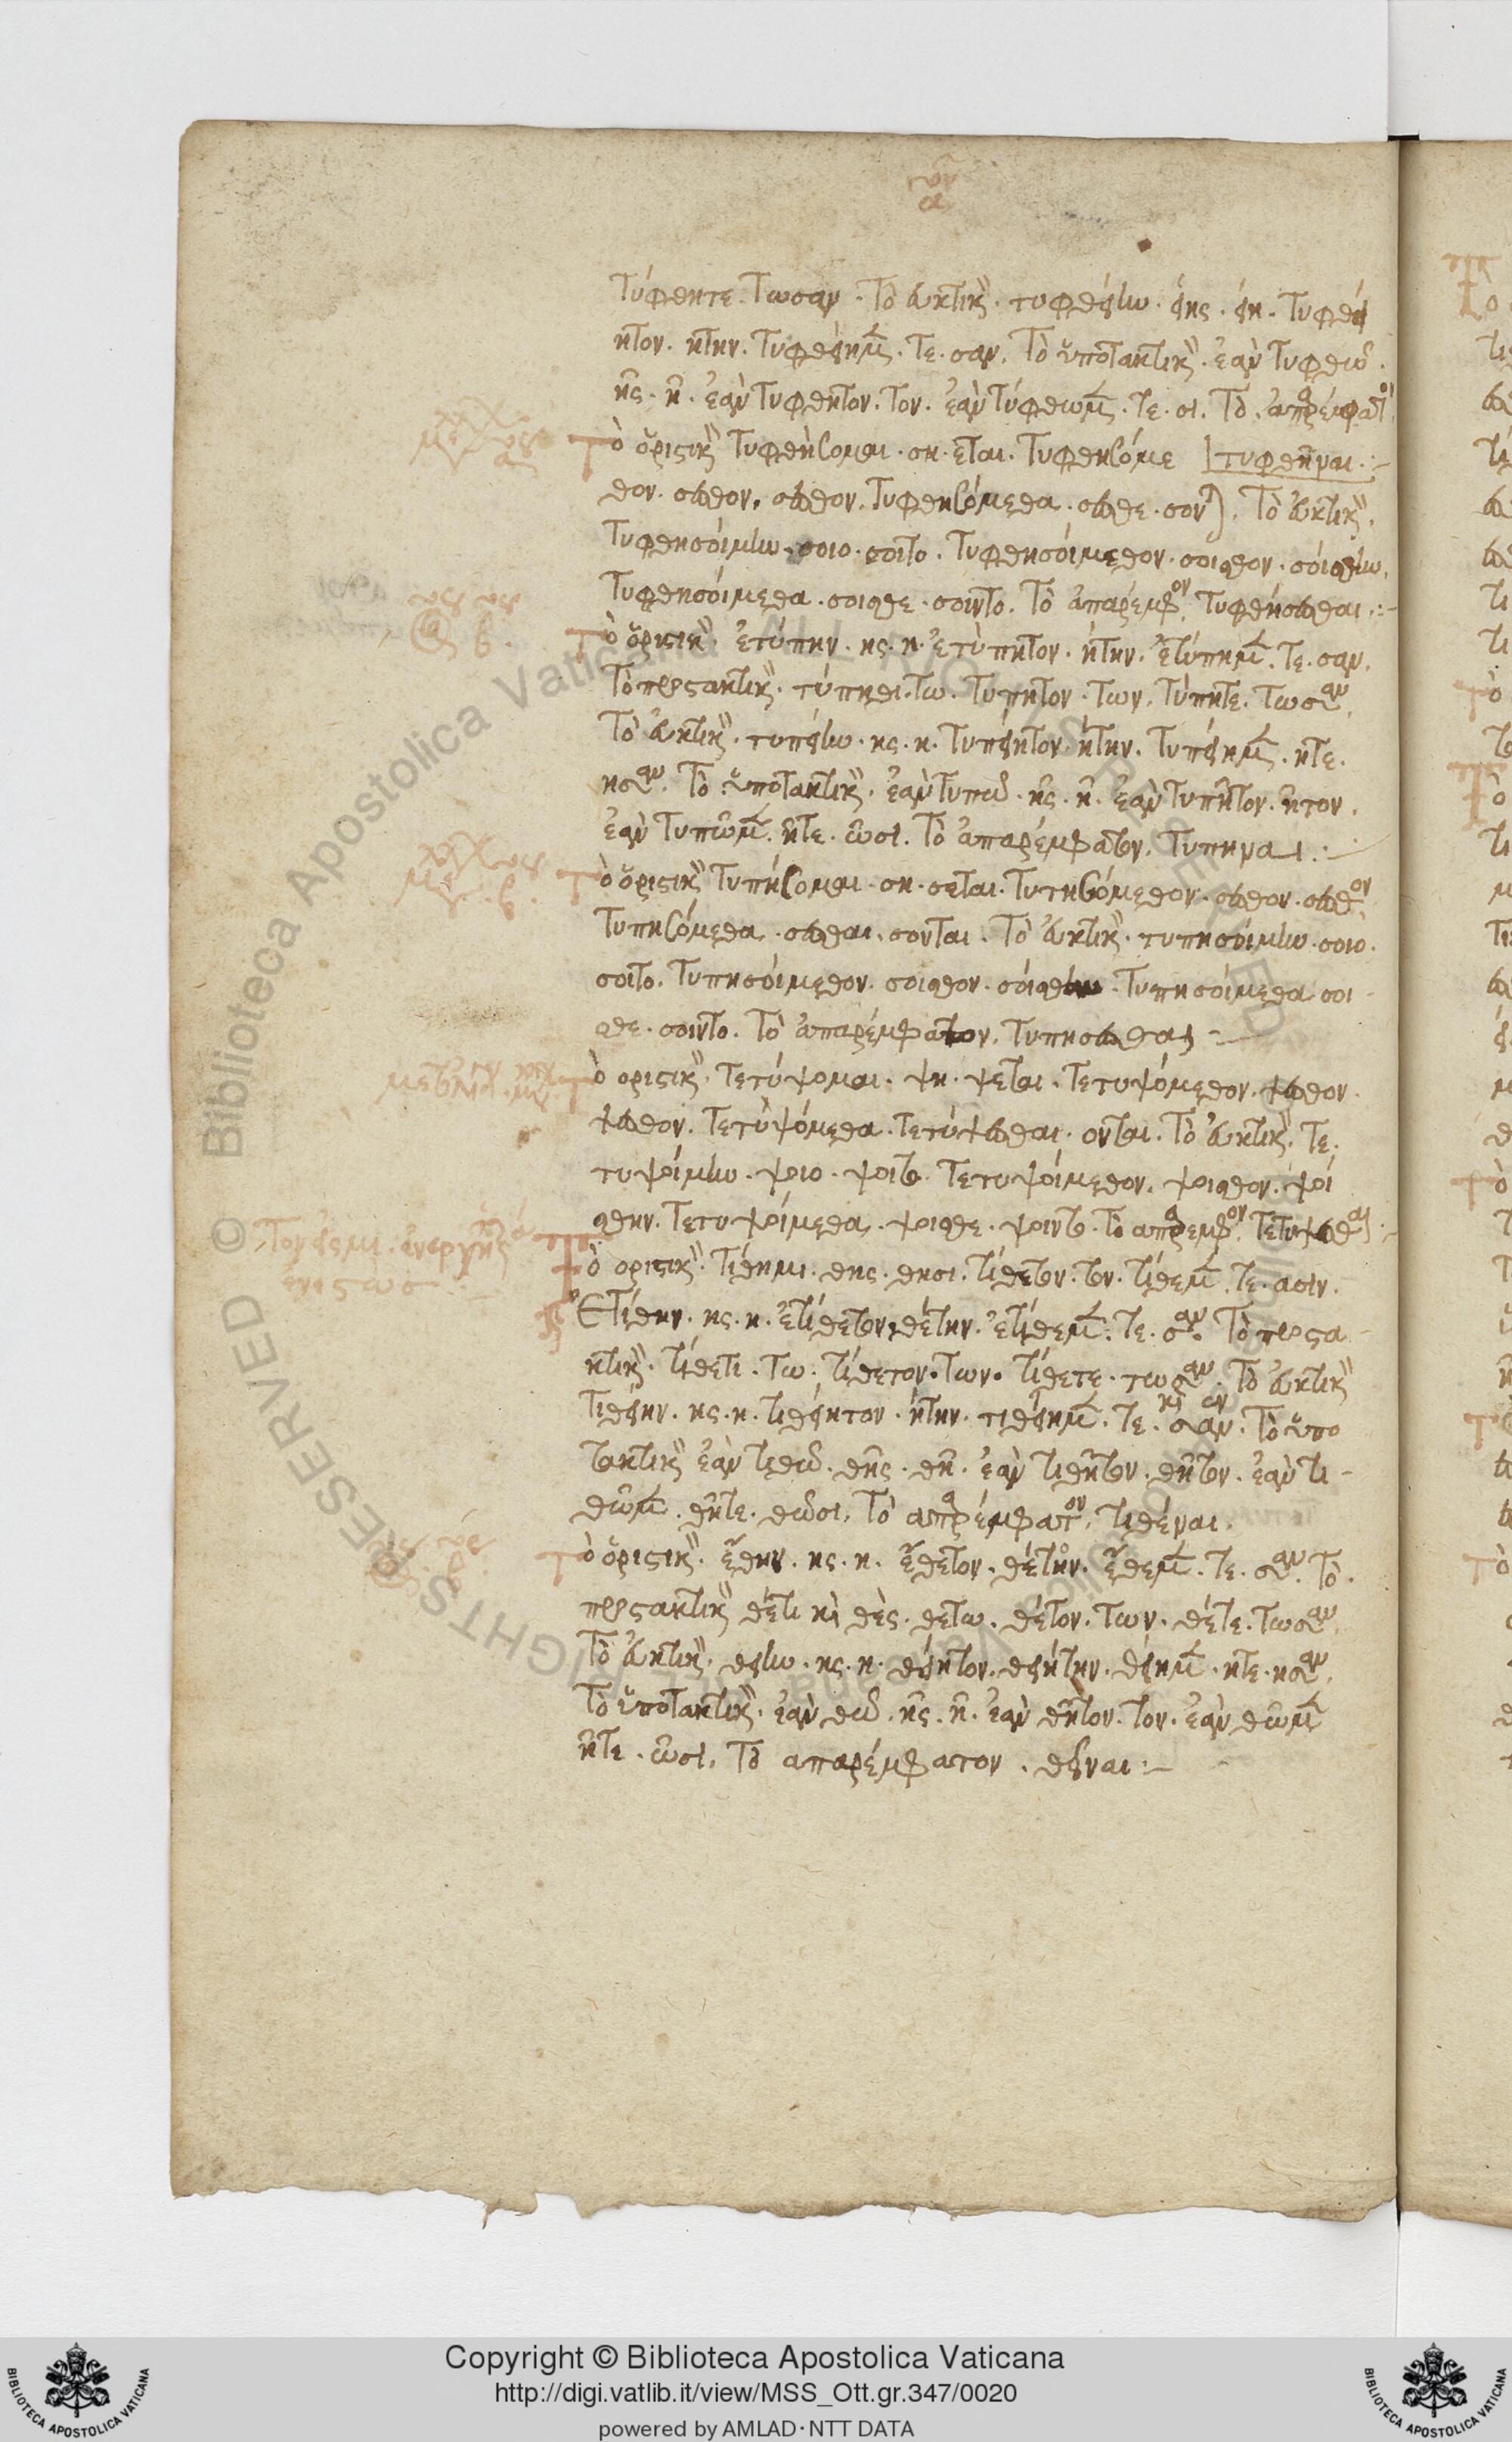 τύφθητε. τωσαν. Τὸ ἐυκτικ. τυφθείην. είης. είη. τυφθεί
ητον. ητην. τυφθείημ. τε. σαν. Τὸ ὑποτακτικ. ἐὰν τυφθῶ.
ῆς. ῆ. ἐὰν τυφθητον. τον. ἐὰν τύφθωμ. τε. σι. Τὸ. ἀπαρέμφατον
Τὸ ὁριστικ τυφθήσομαι. ση. εται. τυφθησόμε τυφθῆναι:-
θον. σεσθον. σεσθον. τυφθησόμεθα. σεσθε. σονται. Τὸ ἐυκτικ.
τυφθησόιμην. σοιο. σοιτο. τυφθησόιμεθον. σοισθον. σόισθην.
τυφθησόιμεθα. σοισθε. σοιντο. Τὸ ἀπαρέμφον. τυφθήσεσθαι.:-
Τὸ ὁριστικ. ἐτύπην. ης. η. ἐτύπητον. ήτην. ἐτύπημ. τε. σαν.
Τὸ προστακτικ. τύπηθι. τω. τύπητον. των. τύπητε. τωσαν.
Τὸ ἐυκτικ. τυπείην. ης. η. τυπείητον. ήτην. τυπείημ. ητε.
ησαν. Τὸ ὑποτακτικ. ἐὰν τυπῶ. ῆς. ῆ. ἐὰν τυπῆτον. ῆτον.
ἐὰν τυπῶμ. ῆτε. ῶσι. Τὸ ἀπαρέμφατον. τυπηναι:-
Τὸ ὁριστικ τυπήσομαι. ση. σεται. τυπησόμεθον. σεσθον. σεσθον.
τυπησόμεθα. σεσθαι. σονται. Τὸ ἐυκτικ. τυπησόιμην. σοιο.
σοιτο. τυπησόιμεθον. σοισθον. σόισθην. τυπησόιμεθα. σοι
σθε. σοιντο. Τὸ ἀπαρέμφατον. τυπησεσθαι:-
Τὸ οριστικ. τετύψομαι. ψη. ψεται. τετυψόμεθον. ψεσθον.
ψεσθον. τετυψόμεθα. τετύψεσθαι. ονται. Τὸ ἐυκτικ. τε.
τυψοίμην. ψοιο. ψοιτο. τετυψοίμεθον. ψοισθον. ψοί
σθην. τετυψοίμεθα. ψοισθε. ψοιντο. Τὸ απαρεμφον. τετυψεσθαι:-
Τὸ οριστικ. τίθημι. θης. θησι. τίθετον. τον. τίθεμ. τε. ασιν.
Ἐτίθην. ης. η. ἐτίθετον. θέτην. ἐτίθεμ. τε. σαν. Τὸ προστα
κτικ. τίθετι. τω. τίθετον. των. τίθετε. τωσαν. Τὸ ἐυκτικ
τιθείην. ης. η. τιθείητον. ήτην. τιθείημ. τε. σαν. Τὸ ὑπο
τακτικ ἐὰν τιθῶ. θῆς. θῆ. ἐὰν τιθῆτον. θῆτον. ἐὰν τι-
θῶμ. θῆτε. θῶσι. Τὸ απαρέμφατον. τιθέναι.
Τὸ ὁριστικ. ἔθην. ης. η. ἔθετον. θέτην. ἔθεμ. τε. σαν. Τὸ.
προστακτικ θέτι κὶ θὲς. θετω. θέτον. των. θέτε. τωσαν.
Τὸ ἐυκτικ. θείην. ης. η. θείητον. θειήτην. θείημ. ητε. ησαν.
Τὸ ὑποτακτικ. ἐὰν θῶ. ῆς. ῆ. ἐὰν θῆτον. τον. ἐὰν θῶμ
ῆτε. ῶσι. Τὸ απαρέμφατον. θεῖναι:-
Copyright © Biblioteca Apostolica Vaticana
http://digi.vatlib.it/view/MSS_Ott.gr.347/0020
powered by AMLAD·NTT DATA